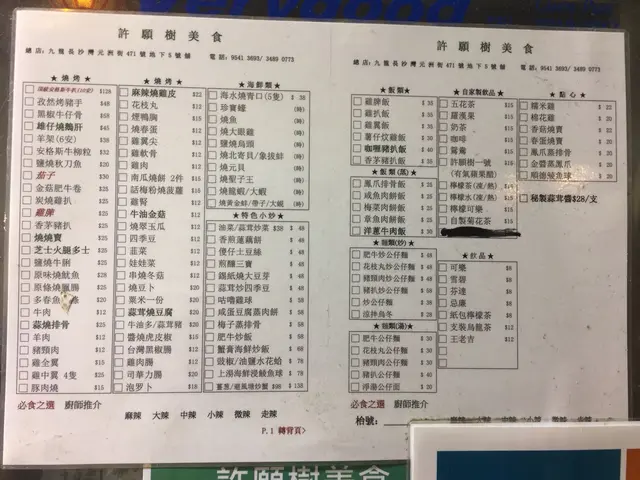 許願樹美食
總店:九龍長沙灣元洲街471號地下8號舖 電話:9541 3693/ 3489 0773
★燒烤★
孜然烤豬手 $48
黑椒牛仔骨 $58
雄仔燒鵝肝 $45
羊架(6安) $38
安格斯牛柳粒 $32
鹽燒秋刀魚 $20
茄子 $30
金菇肥牛卷 $25
炭燒雞扒 $25
雞脾 $25
香茅豬扒 $25
燒燒賣 $25
芝士火腿多士 $28
鹽燒牛脷 $25
原味燒魷魚 $28
牛肉 $12
蒜燒排骨 $25
羊肉 $12
豬頸肉 $12
雞全翼 $15
雞中翼 4隻 $25
豚肉燒 $15
★燒烤★
麻辣雞皮 $22
花枝丸 $12
煙鴨胸 $15
燒春蛋 $12
雞翼尖 $12
雞軟骨 $12
雞肉 $12
南瓜燒餅 2件 $15
話梅粉燒菠蘿 $15
雞腎 $12
牛油金菇 $12
燒翠玉瓜 $12
四季豆 $12
韭菜 $12
娃娃菜 $12
串燒冬菇 $12
燒豆卜 $20
粟米一份 $20
蒜茸燒豆腐 $26
牛油多/蒜茸豬 $20
醬燒虎皮椒 $15
台灣黑椒腸 $12
雞肉腸 $12
司華力腸 $20
泡罗卜 $18
★海鮮類★
海水燒青口(5隻) $38
珍寶蠔 (時)
燒魚 (時)
燒大眼雞 (時)
鹽燒烏頭 (時)
燒北寄貝/象拔蚌 (時)
燒元貝 (時)
燒聖子王 (時)
燒龍蝦/大蝦 (時)
燒黃金蚌/帶子/大蜆 (時)
★特色小炒★
油菜/蒜茸炒菜 $38 $48
香煎蓮藕餅 $48
優仔土豆絲 $48
煎釀三寶 $48
錫紙燒大豆芽 $48
咕嚕雞球 $58
咸蛋豆腐蒸肉餅 $58
梅子蒸排骨 $58
肥牛炒飯 $58
蟹膏海鮮炒飯 $68
豉椒/油鹽水花蛤 $78
上湯海鮮浸鯪魚球 $78
薑蔥/避風塘炒蟹 $98 $138
必食之選 廚師推介
麻辣 大辣 中辣 小辣 微辣 走辣
P.1 轉背頁>
許願樹美食
總店:九龍長沙灣元洲街471號地下8號舖 電話:9541 3693/ 3489 0773
★飯類★
雞脾飯 $35
雞扒飯 $35
雞翼飯 $35
薯仔炆雞飯 $30
咖喱豬扒飯 $40
香茅豬扒飯 $35
★飯類(蒸)★
鳳爪排骨飯 $30
咸魚肉餅飯 $30
梅菜肉餅飯 $30
章魚肉餅飯 $30
洋蔥牛肉飯 $30
★麵類(炒)★
肥牛炒公仔麵 $48
花枝丸炒公仔麵 $48
豬頸肉炒公仔麵 $48
豬扒炒公仔麵 $58
炒公仔麵 $38
涼拌烏冬 $28
★麵類(湯)★
肥牛公仔麵 $30
花枝丸公仔麵 $30
豬頸肉公仔麵 $30
豬扒公仔麵 $40
淨湯公仔面 $20
★自家製飲品★
五花茶 $15
羅漢果 $15
奶茶 $15
咖啡 $15
鴛鴦 $15
許願樹一號 $15
(有氣蘋果醋)
檸檬茶(凍/熱) $15
檸檬水(凍/熱) $15
檸檬可樂 $15
自製菊花茶 $15
★飲品★
可樂 $8
雪碧 $8
芬達 $8
忌廉 $8
紙包檸檬茶 $8
支裝烏龍茶 $12
王老吉 $12
★點心★
糯米雞 $22
棉花雞 $20
香菇燒賣 $22
春蛋燒賣 $20
鳳爪蒸排骨 $20
金醬蒸鳳爪 $20
順德煎魚球 $20
秘製蒜茸醬$28/支
必食之選 廚師推介
枱號:
許願樹美食